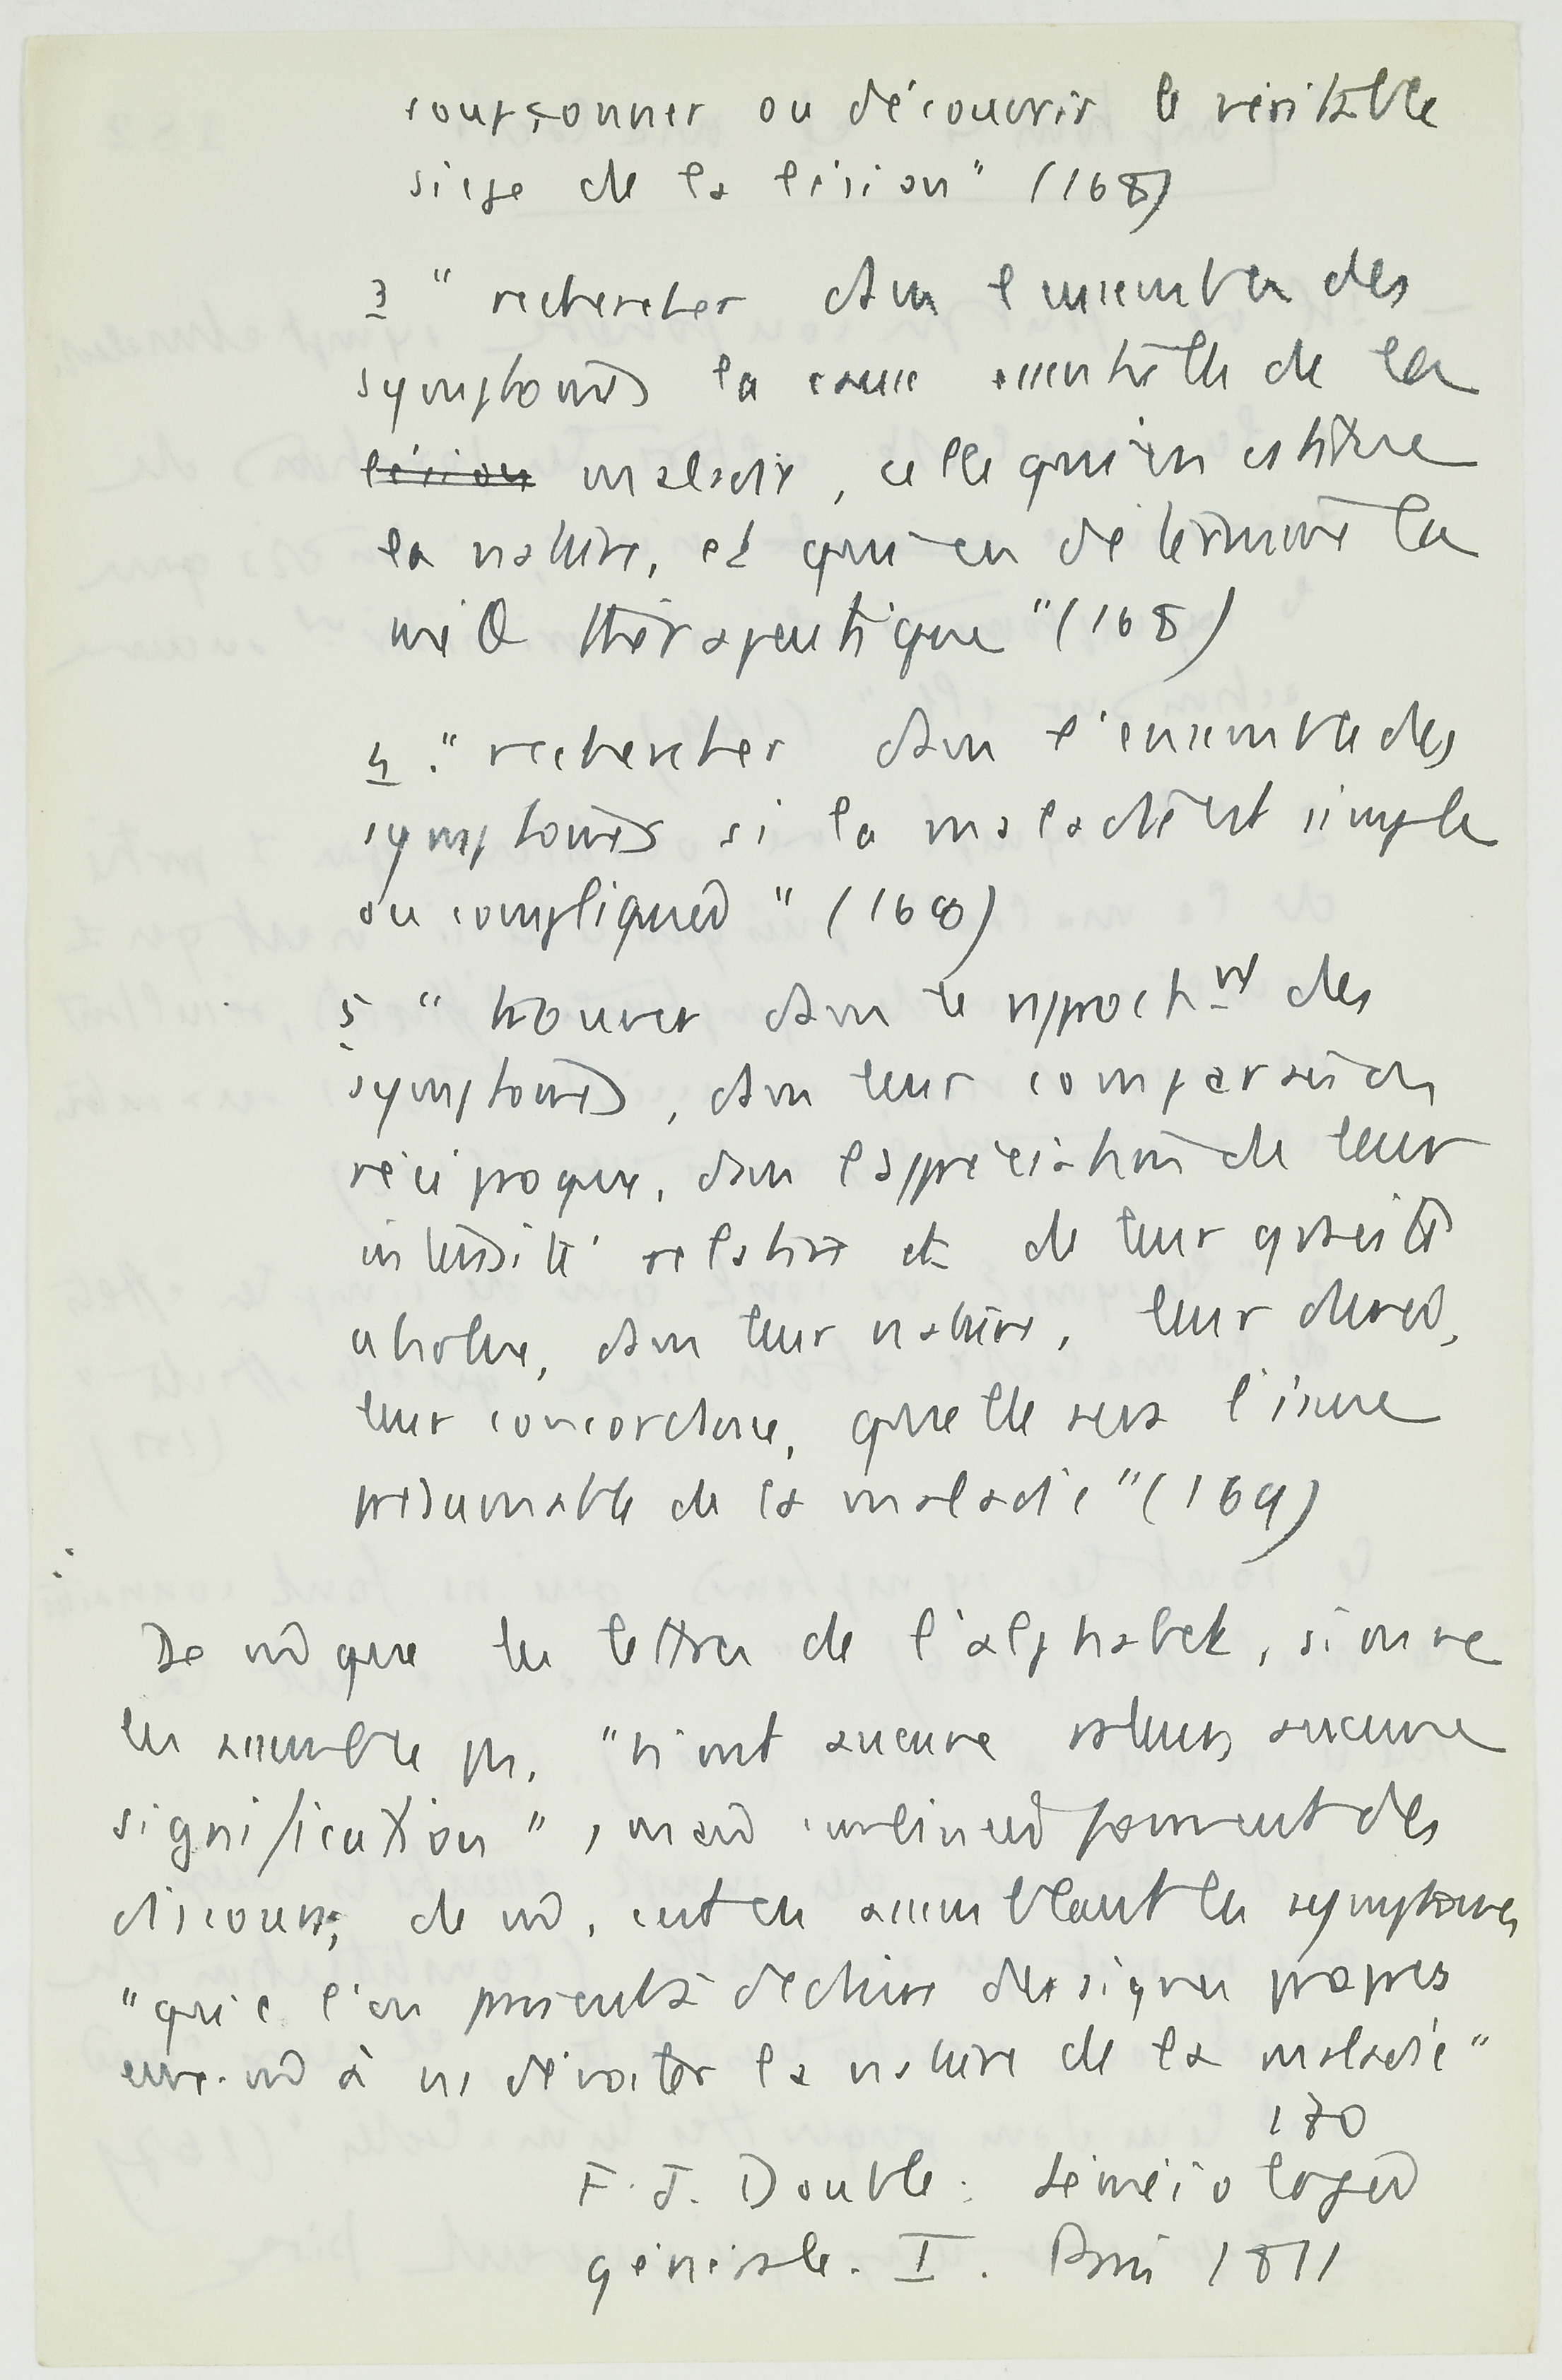 soupçonner ou découvrir le véritable
siège de la lésion" (168)
3 " rechercher dans l'ensemble des
symptomes la cause essentielle de la
lésion maladie, celle qui en constitue
la nature, et qui en détermine la
méth thérapeutique" (168)
4 : " rechercher dans l'ensemble des
symptomes si la maladie est simple
ou compliquée " (168)
5 " trouver dans le rapprocht des
symptomes, dans leur comparaison
réciproque, dans l'appréciation de leur
intensité relative et de leur gravité
absolue, dans leur nature, leur durée,
leur concordance, quelle sera l'issue
présumable de la maladie" (169)
De m que les lettres de l'alphabet, si on ne
les assemble pas, "n'ont aucune valeur, aucune
signification", mais combinées forment des
discours; de m, c'est en assemblant les symptomes
"que l'on parvient à déduire des signes propres
eux-m à ns dévoiler la nature de la maladie"
170
F. J. Double : Séméiologie
générale. I. Paris 1811